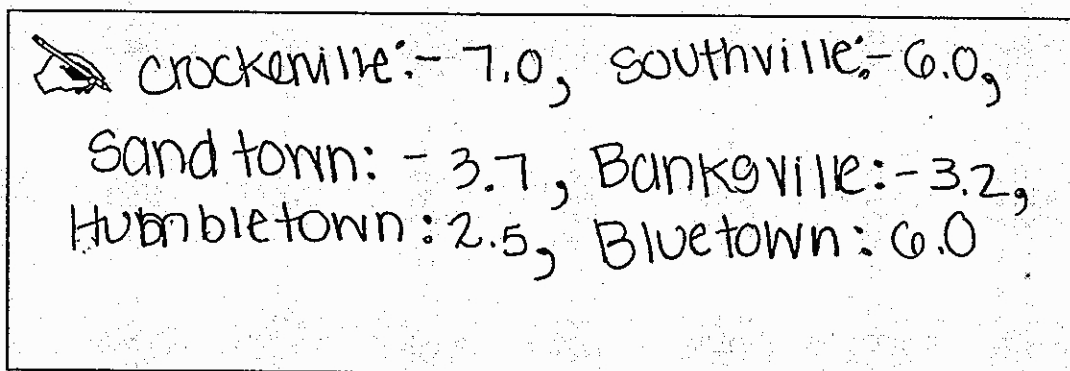 Crockerville: - 7.0, Southville: - 6.0,
Sandtown: - 3.7, Banksville: - 3.2,
Humbletown: 2.5, Bluetown: 6.0